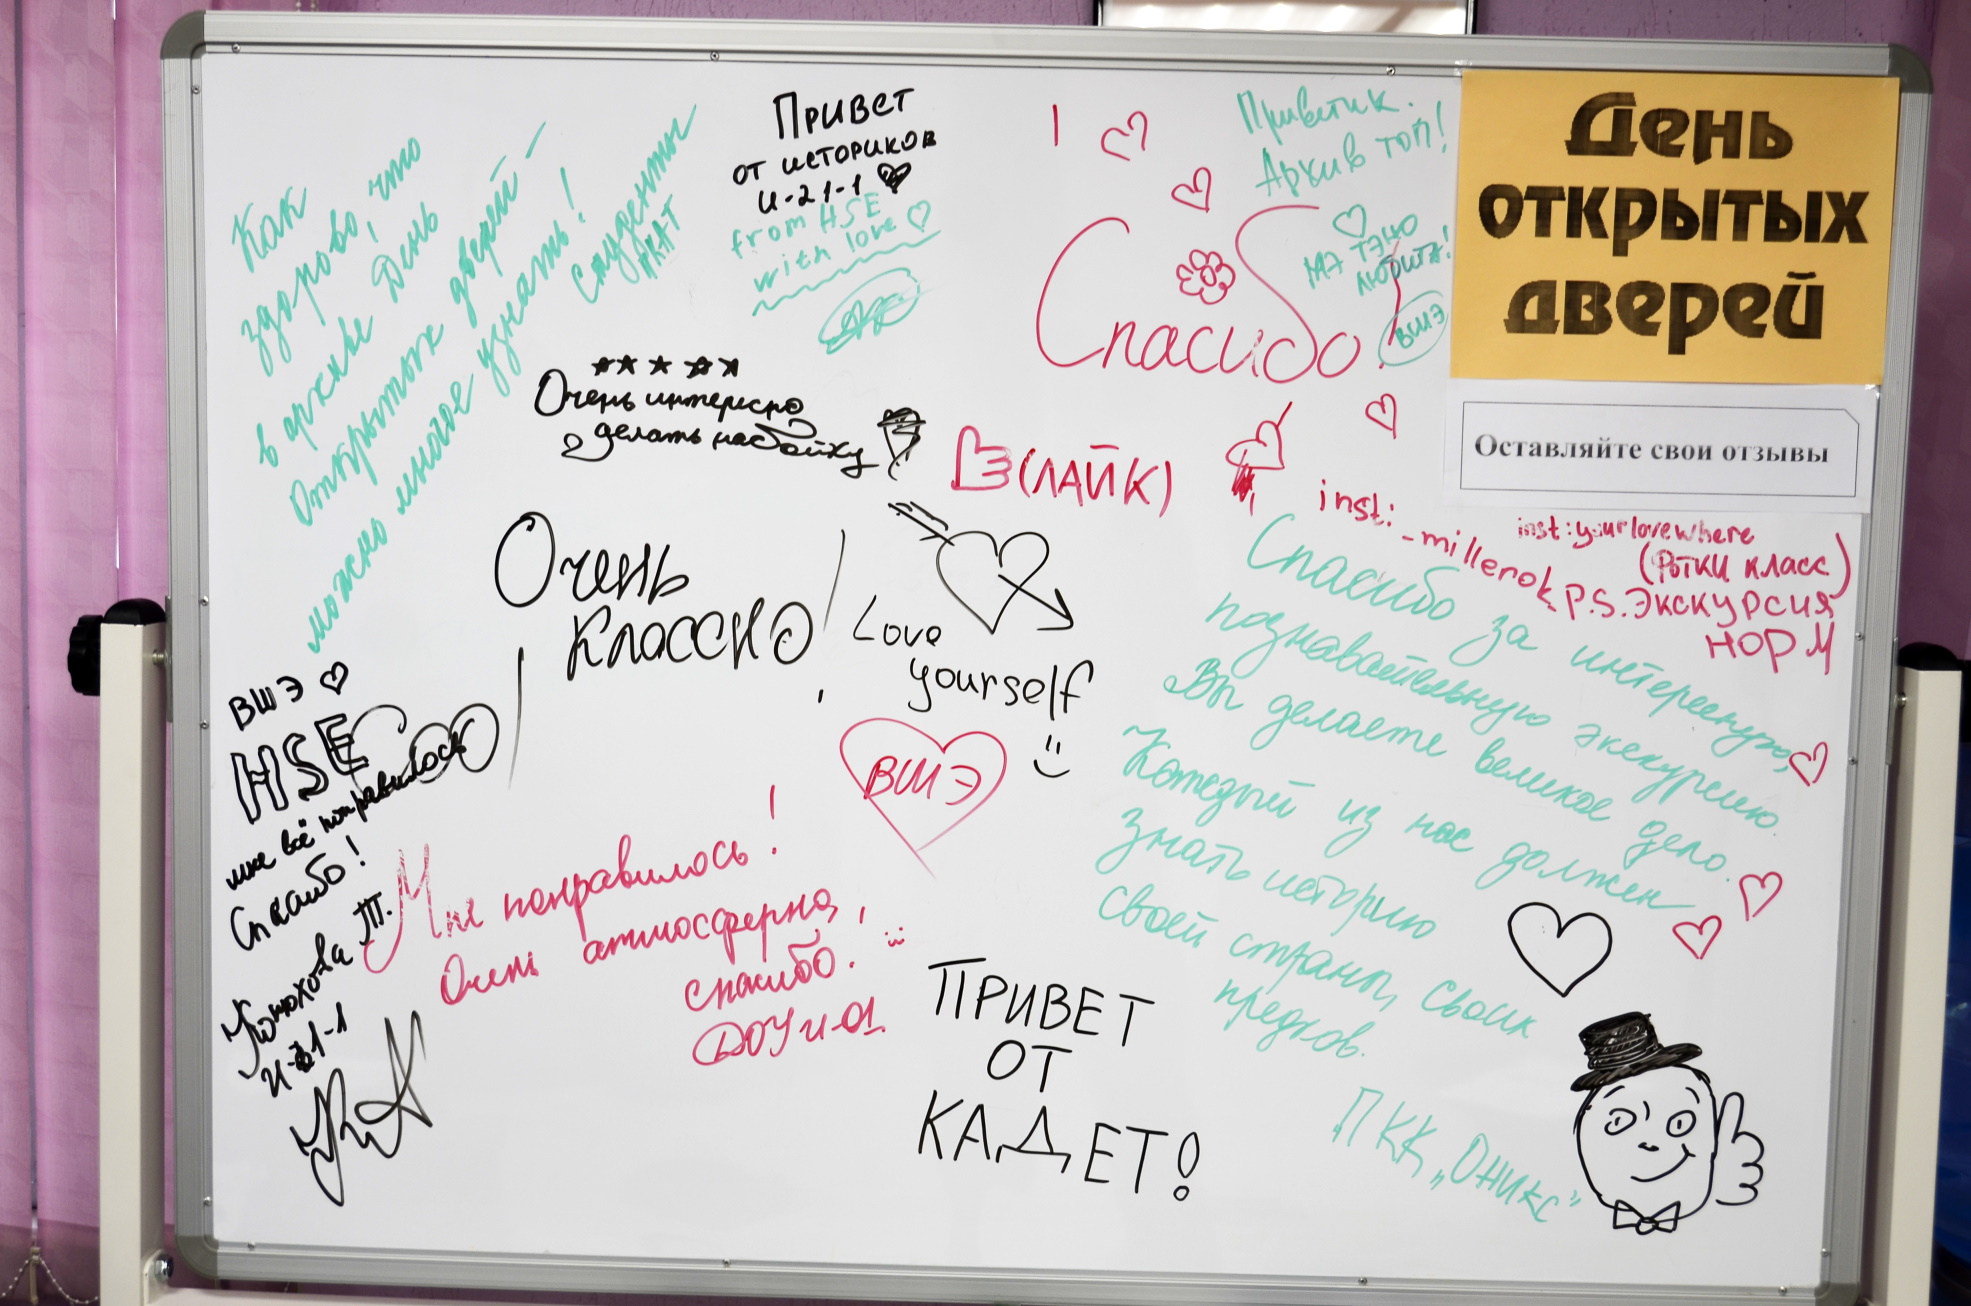 День
открытых
дверей
Оставляйте свои отзывы
Как
здорово, что
в архиве День
Открытых дверей -
можно многое узнать!
студенты
Привет
от историков
и-21-1
from HSE
with love
Очень интересно
делать наборйку
Очень
классно!
Love
yourself
ВШЭ
I
Спасибо!
Приветик.
Архив топ!
МА ТЭЦО
ЛЮБИТА!
ВШЭ
(ЛАЙК)
inst:
_millerok
inst: yourlovewhere
(Ротки класс)
P.S. Экскурсия
норм
Спасибо за интересную,
познавательную экскурсию.
Вы делаете великое дело.
Каждый из нас должен
знать историю
своей страны, своих
предков.
ПКК „Оникс"
ВШЭ
HSE
мне всё понравилось
Спасибо!
Конюхова Т.
и-21-1
Мне понравилось!
Очень атмосферно,
спасибо.
ДОУи-01
ПРИВЕТ
ОТ
КАДЕТ!